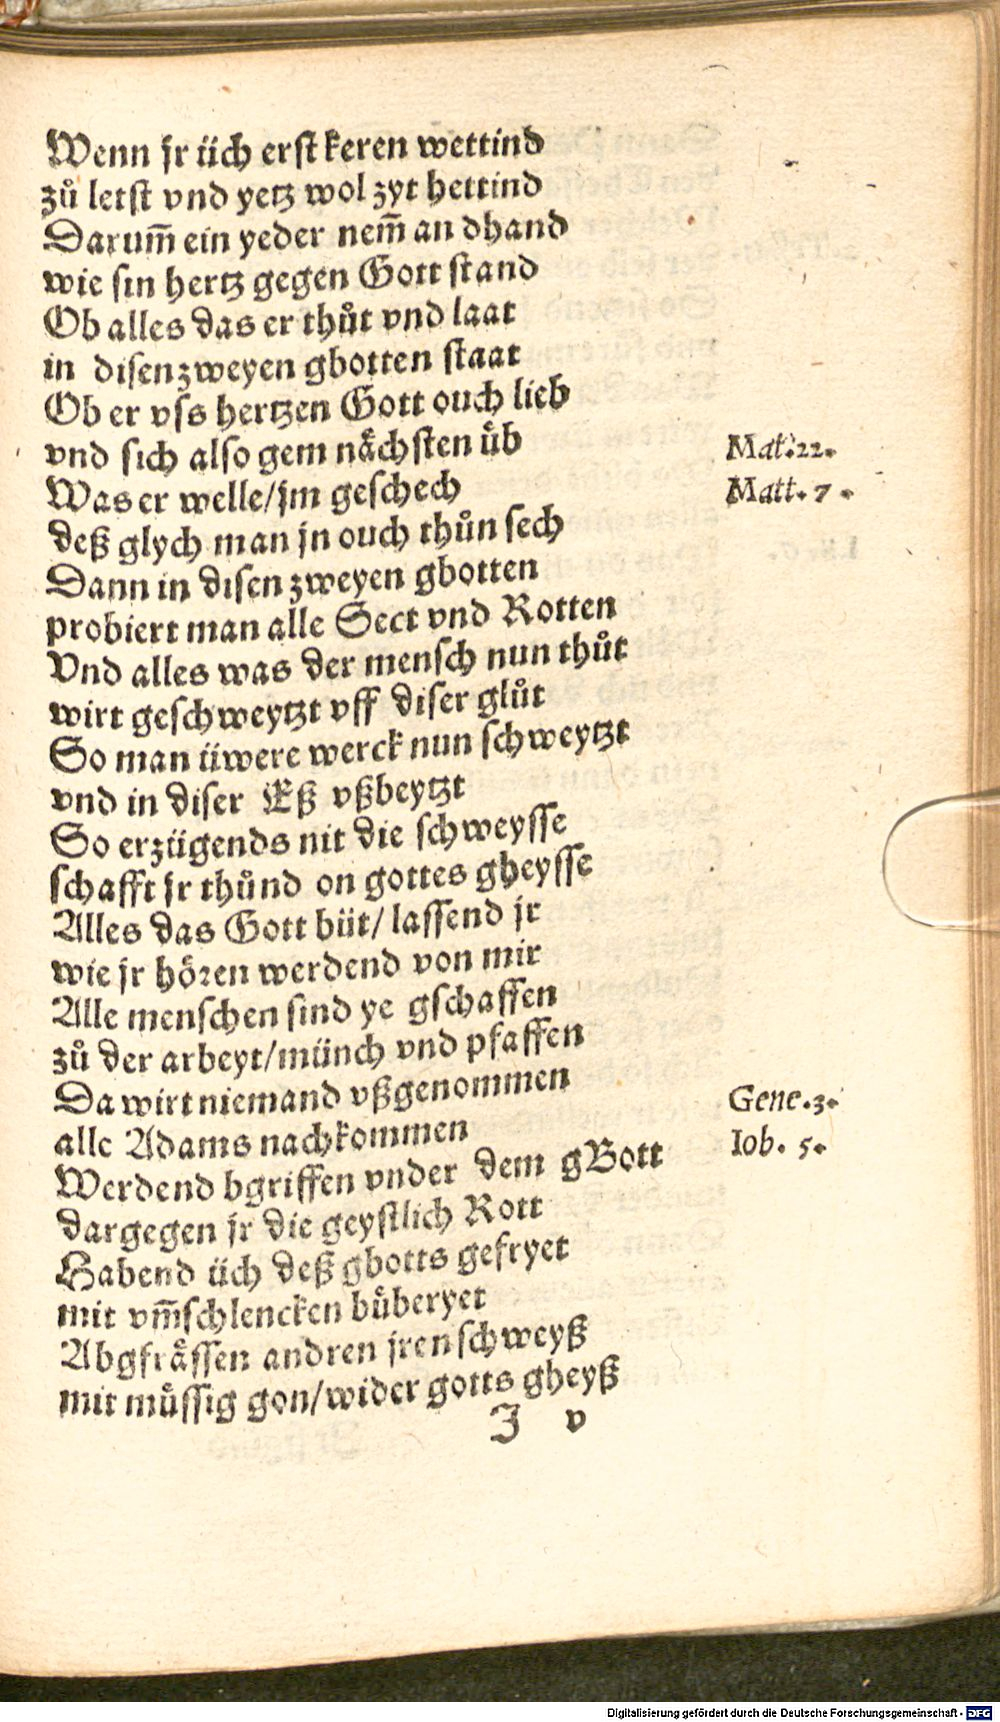 Wenn jr üch erst keren wettind
zů letst vnd yetz wol zyt hettind
Darum̃ ein yeder nem̃ an dhand
wie sin hertz gegen Gott stand
Ob alles das er thůt vnd laat
in disen zweyen gbotten staat
Ob er vss hertzen Gott ouch lieb
vnd sich also gem nächsten üb Mat. 22.
Was er welle/jm geschech Matt. 7.
deß glych man jn ouch thůn sech
Dann in disen zweyen gbotten
probiert man alle Sect vnd Rotten
Vnd alles was der mensch nun thůt
wirt geschweytzt vff diser glůt
So man üwere werck nun schweytzt
vnd in diser Eß vßbeytzt
So erzügends nit die schweysse
schafft jr thůnd on gottes gheysse
Alles das Gott büt/ lassend jr
wie jr hören werdend von mir
Alle menschen sind ye gschaffen
zů der arbeyt/münch vnd pfaffen
Da wirt niemand vßgenommen
alle Adams nachkommen Gene. 3.
Werdend bgriffen vnder dem gBott Iob. 5.
dargegen jr die geystlich Rott
Habend üch deß gbotts gefryet
mit vm̃schlencken bůberyet
Abgfrässen andren jren schweyß
mit müssig gon/wider gotts gheyß
J v
Digitalisierung gefördert durch die Deutsche Forschungsgemeinschaft - DFG